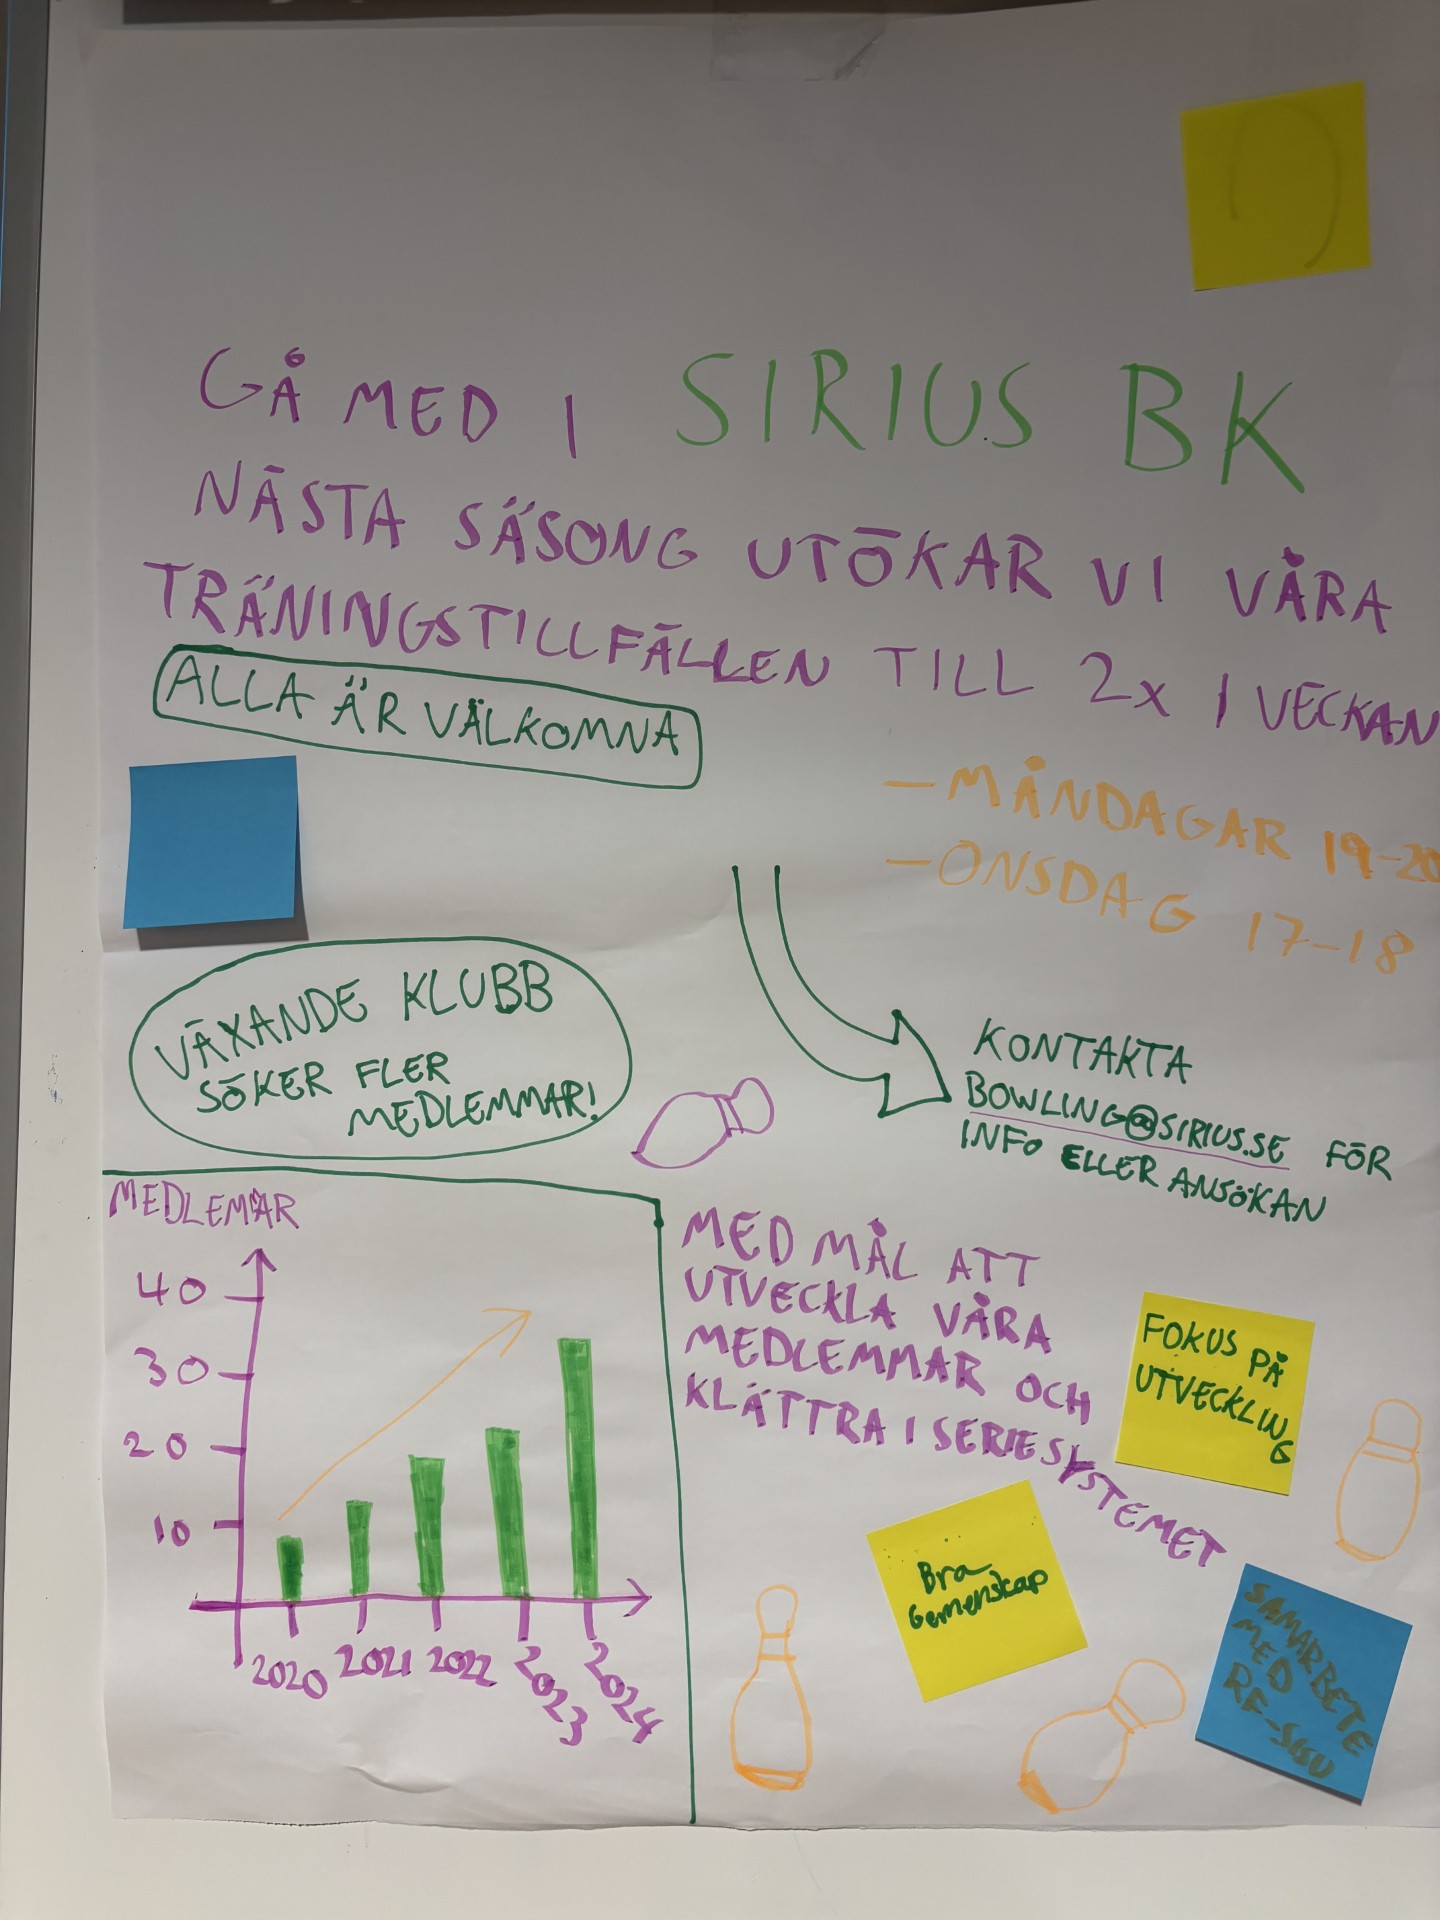 GÅ MED I SIRIUS BK
NÄSTA SÄSONG UTÖKAR VI VÅRA
TRÄNINGSTILLFÄLLEN TILL 2x I VECKAN
ALLA ÄR VÄLKOMNA
- MÅNDAGAR 19-20
- ONSDAG 17-18
VÄXANDE KLUBB
SÖKER FLER
MEDLEMMAR!
KONTAKTA
BOWLING@SIRIUS.SE FÖR
INFO ELLER ANSÖKAN
MEDLEMAR
40
30
20
10
2020 2021 2022 2023 2024
MED MÅL ATT
UTVECKLA VÅRA
MEDLEMMAR OCH
KLÄTTRA I SERIESYSTEMET
FOKUS PÅ
UTVECKLING
Bra
Gemenskap
SAMARBETE
MED
RF-SISU